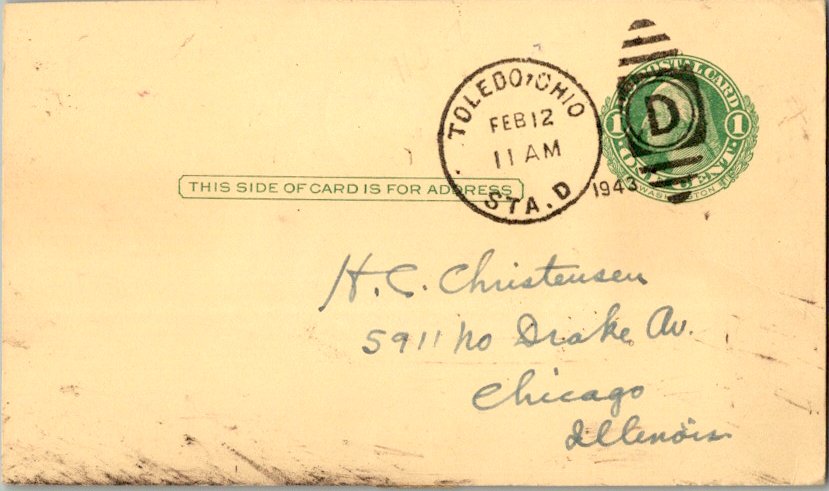 TOLEDO, OHIO
FEB 12
11 AM
STA. D
1943
D
POSTAL CARD
1 1
ONE CENT
WASHINGTON
THIS SIDE OF CARD IS FOR ADDRESS
H. C. Christensen
5911 No Drake Av.
Chicago
Illinois